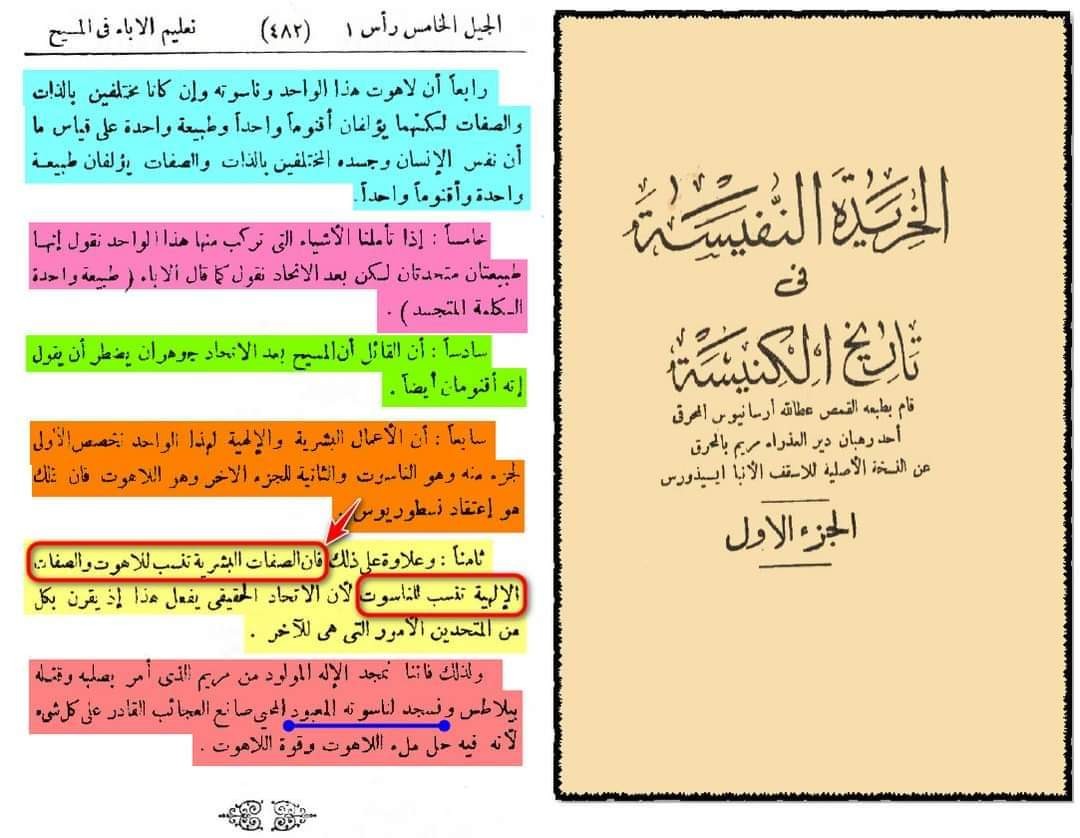 الجيل الخامس رأس ١ (٤٨٢) تعليم الاباء فى المسيح
رابعاً أن لاهوت هذا الواحد وناسوته وإن كانا مختلفين بالذات
والصفات لكنهما يؤلفان أقنوماً واحداً وطبيعة واحدة على قياس ما
أن نفس الإنسان وجسده المختلفين بالذات والصفات يؤلفان طبيعة
واحدة وأقنوماً واحداً.
خامساً : إذا تأملنا الأشياء التى تركب منها هذا الواحد نقول إنها
طبيعتان متحدتان لكن بعد الاتحاد نقول كما قال الاباء ( طبيعة واحدة
للكلمة المتجسد ) .
سادساً : أن القائل أن المسيح بعد الاتحاد جوهران يضطر أن يقول
إنه أقنومان أيضاً .
سابعاً : أن الأعمال البشرية والإلهية لهذا الواحد نخصص الأول
لجزء منه وهو الناسوت والثانية للجزء الاخر وهو اللاهوت فان ذلك
هو إعتقاد نسطوريوس .
ثامناً : وعلاوة على ذلك فان الصفات البشرية تنسب للاهوت والصفات
الإلهية تنسب للناسوت لأن الاتحاد الحقيقى يفعل هذا إذ يقرن بكل
من المتحدين الأمور التى هى للآخر .
ولذلك فاننا نمجد الإله المولود من مريم الذى أمر بصلبه وقتله
بيلاطس ونسجد لناسوته المعبود المحيى صانع العجائب القادر على كل شىء
لأنه فيه حل ملء اللاهوت وقوة اللاهوت .
الخريدة النفيسة
فى
تاريخ الكنيسة
قام بطبعه القمص عطاالله أرسانيوس المحرقى
أحد رهبان دير العذراء مريم بالمحرق
عن النسخة الأصلية للاسقف الأنبا ايسيذورس
الجزء الاول